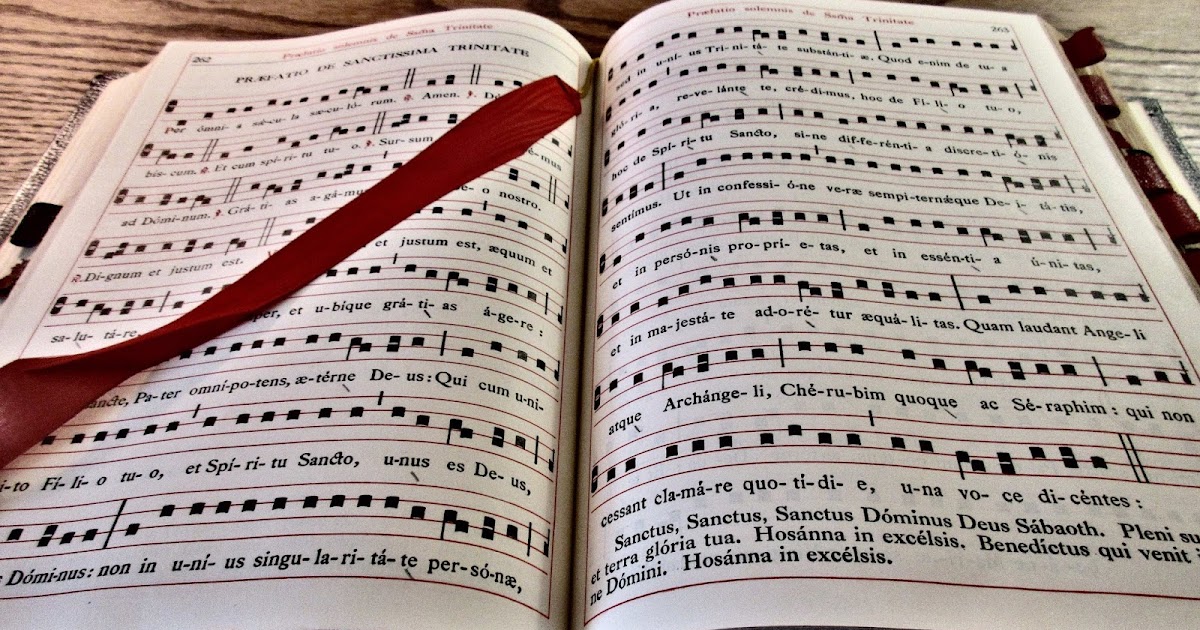 262
Præfatio solemnis de Ssma Trinitate
PRÆFATIO DE SANCTISSIMA TRINITATE
Per ómni- a sǽ-cu- la sæcu-ló- rum. ℟. Amen. ℣. Dó
bís- cum. ℟. Et cum spí-ri- tu tu- o. ℣. Sur-sum
émus
ad Dómi-num. ℣. Grá-ti- as a-gá-mu
e- o nostro.
℟. Di-gnum et justum est.
et justum est, æquum et
sa- lu- tá-re,
per, et u-bíque grá-ti- as á-ge-re :
Sancte, Pa- ter omní-po-tens, æ-térne De- us : Qui cum u-ni-
to Fí- li- o tu- o, et Spí- ri- tu Sancto, u-nus es De- us,
Dómi-nus : non in u-ní- us singu- la-ri- tá- te per-só-næ,
Præfatio solemnis de Ssma Trinitate
263
sed in u-ní- us Tri-ni- tá- te substánti- æ. Quod e-nim de tu- a
glóri- a, re-ve-lánte te, cré-dimus, hoc de Fí- li- o tu- o,
hoc de Spí- ri- tu Sancto, si-ne dif-fe-rénti- a discre-ti- ó- nis
sentímus. Ut in confessi- ó-ne veræ sempi-ternǽque De- i- tá-tis,
et in persó-nis pro-prí- e- tas, et in essén-ti- a ú-ni- tas,
et in ma-jestá- te ad-o-ré- tur æquá-li- tas. Quam laudant Ange-li
atque Archánge- li, Ché-ru-bim quoque ac Sé-raphim : qui non
cessant cla-má-re quo- tí-di- e, u-na vo- ce di-céntes :
Sanctus, Sanctus, Sanctus Dóminus Deus Sábaoth. Pleni su
et terra glória tua. Hosánna in excélsis. Benedíctus qui venit
ne Dómini. Hosánna in excélsis.